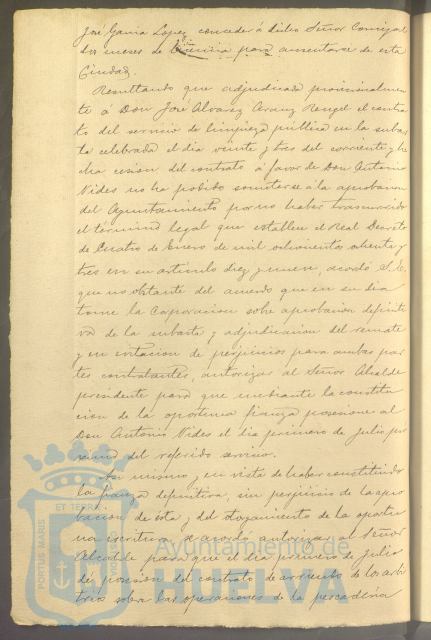 José García Lopez conceder á dicho Señor Concejal
dos meses de licencia para ausentarse de esta
Ciudad.
Resultando que adjudicado provisionalmen
te á Don José Alvarez Aranz Rengel el contra
to del servicio de limpieza pública en la subas
ta celebrada el dia veinte y tres del corriente y he
cha cesion del contrato á favor de Don Antonio
Vides no ha podido someterse á la aprobacion
del Ayuntamiento por no haber trascurrido
el término legal que establece el Real Decreto
de Cuatro de Enero de mil ochocientos ochenta y
tres en su artículo diez y nueve, acordó S. E.
que no obstante del acuerdo que en su dia
tome la Corporacion sobre aprobacion definiti
va de la subasta y adjudicacion del remate
y en evitacion de perjuicios para ambas par
tes contratantes, autorizar al Señor Alcalde
presidente para que mediante la constitu
cion de la oportuna fianza posesione al
Don Antonio Vides el dia primero de Julio
del referido servicio.
Asi mismo, en vista de haber constituido
la fianza definitiva, sin perjuicio de la apro
bacion de ésta y del otorgamiento de la oportu
na escritura, se acordó autorizar al Señor
Alcalde para que el dia primero de Julio
dé posesion del contrato de arriendo de los arbi
trios sobre las operaciones de la pescadería
PORTUS MARIS
ET TERRÆ
Ayuntamiento de
HUELVA